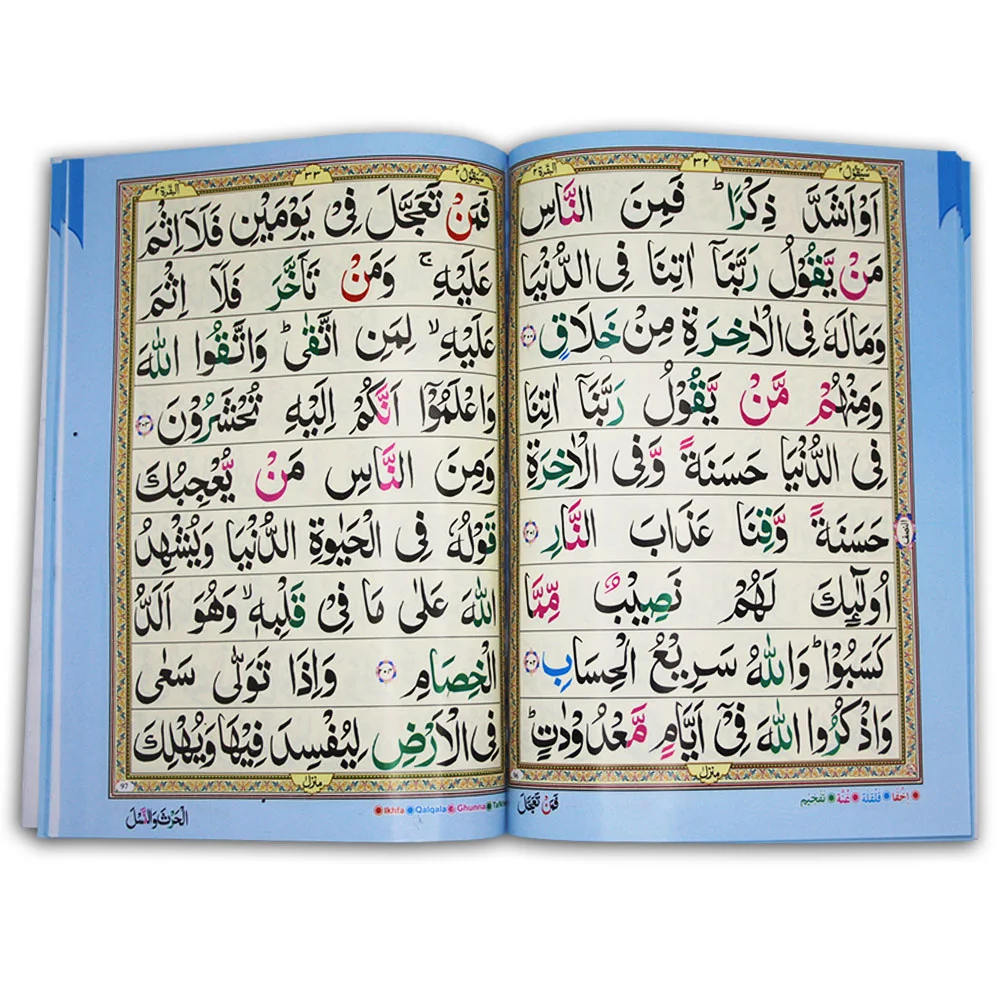 سيقول ٢
٣٢
البقرة ٢
اَوْ اَشَدَّ ذِكْرًا ؕ فَمِنَ النَّاسِ
مَنْ يَّقُوْلُ رَبَّنَاۤ اٰتِنَا فِى الدُّنْيَا
وَمَا لَهٗ فِى الْاٰخِرَةِ مِنْ خَلَاقٍ ۝۲۰۰
وَمِنْهُمْ مَّنْ يَّقُوْلُ رَبَّنَاۤ اٰتِنَا
فِى الدُّنْيَا حَسَنَةً وَّفِى الْاٰخِرَةِ
حَسَنَةً وَّقِنَا عَذَابَ النَّارِ ۝۲۰۱
اُولٰٓئِكَ لَهُمْ نَصِيْبٌ مِّمَّا
كَسَبُوْا ؕ وَاللّٰهُ سَرِيْعُ الْحِسَابِ ۝۲۰۲
وَاذْكُرُوا اللّٰهَ فِىْۤ اَيَّامٍ مَّعْدُوْدٰتٍ ؕ
النصف
منزل
اخفا قلقلة غنة تفخيم
فَمَنْ تَعَجَّلَ
سيقول ٢
٣٣
البقرة ٢
فَمَنْ تَعَجَّلَ فِىْ يَوْمَيْنِ فَلَاۤ اِثْمَ
عَلَيْهِ ۚ وَمَنْ تَاَخَّرَ فَلَاۤ اِثْمَ
عَلَيْهِ ۙ لِمَنِ اتَّقٰى ؕ وَاتَّقُوا اللّٰهَ
وَاعْلَمُوْۤا اَنَّكُمْ اِلَيْهِ تُحْشَرُوْنَ ۝۲۰۳
وَمِنَ النَّاسِ مَنْ يُّعْجِبُكَ
قَوْلُهٗ فِى الْحَيٰوةِ الدُّنْيَا وَيُشْهِدُ
اللّٰهَ عَلٰى مَا فِىْ قَلْبِهٖ ۙ وَهُوَ اَلَدُّ
الْخِصَامِ ۝۲۰۴ وَاِذَا تَوَلّٰى سَعٰى
فِى الْاَرْضِ لِيُفْسِدَ فِيْهَا وَيُهْلِكَ
97
منزل
Ikhfa Qalqala Ghunna
الْحَرْثَ وَالنَّسْلَ